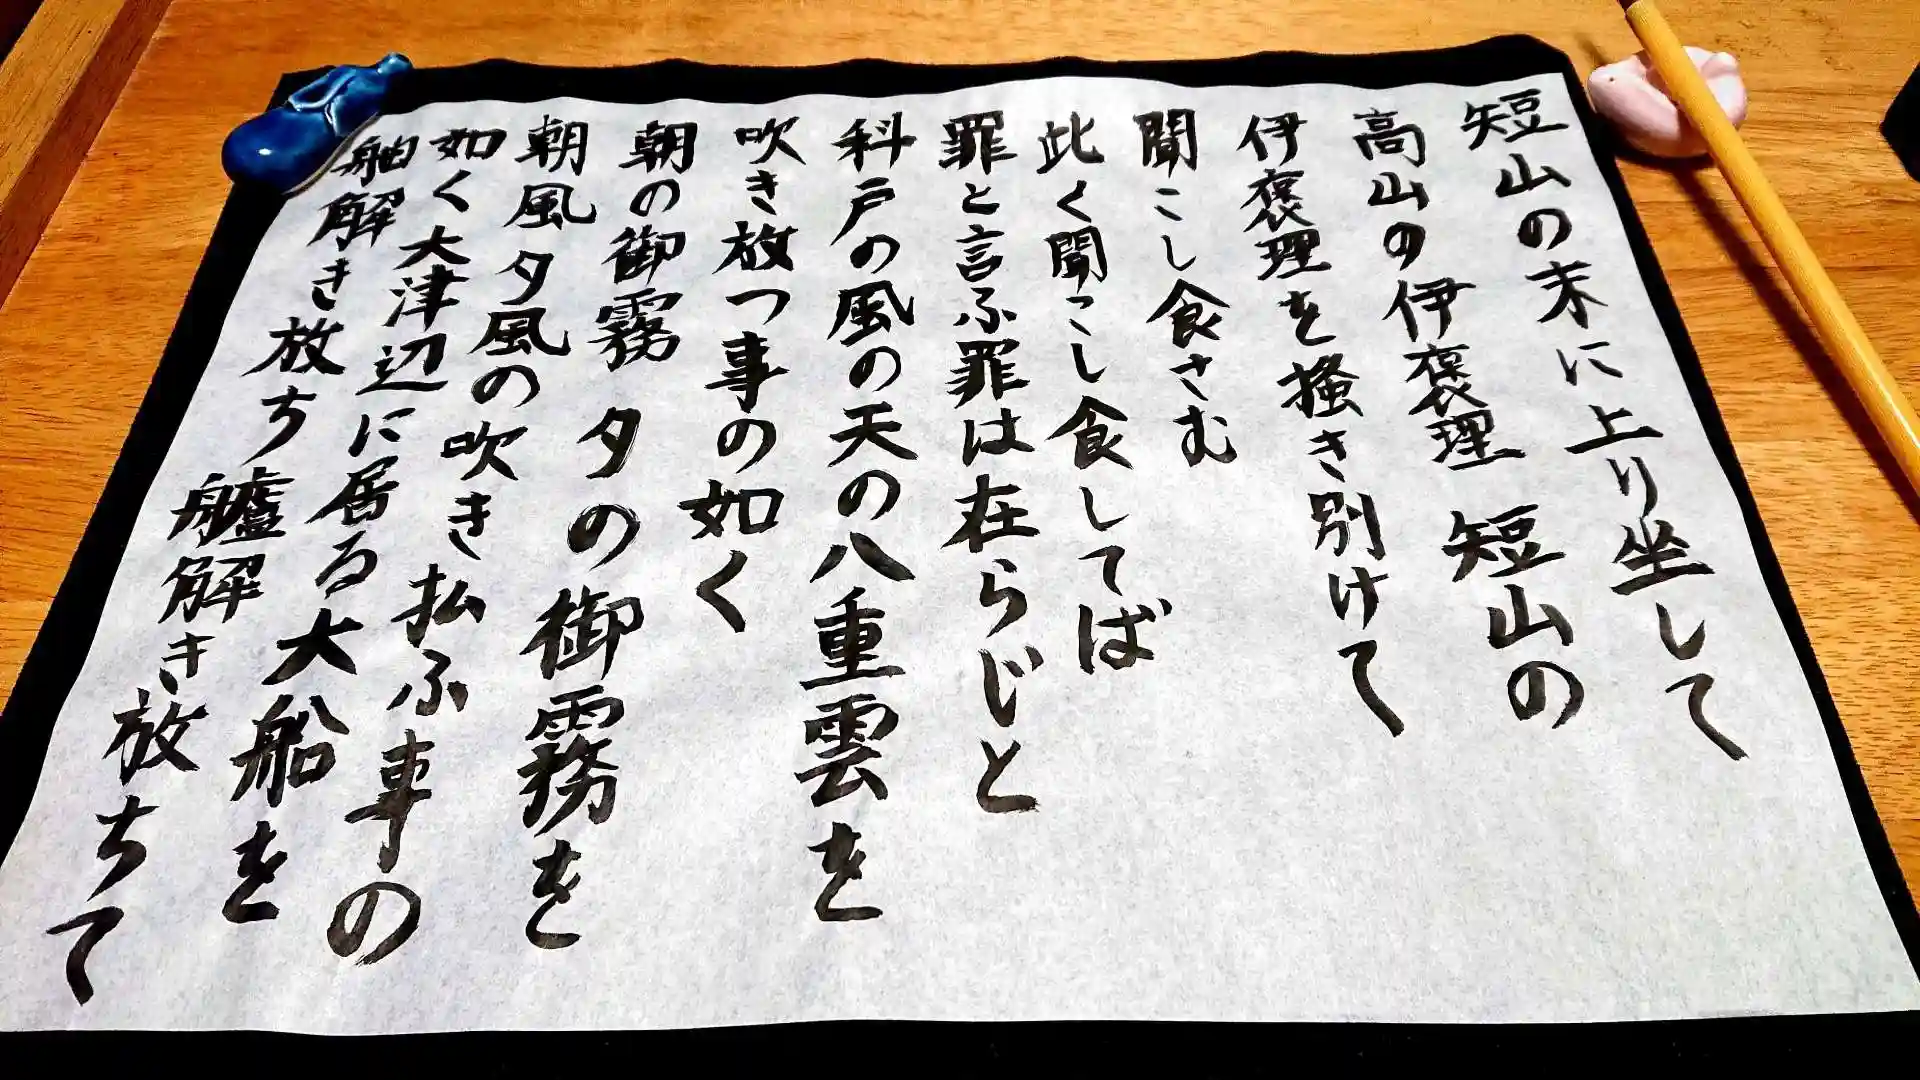 短山の末に上り坐して
高山の伊褒理 短山の
伊褒理を掻き別けて
聞こし食さむ
此く聞こし食してば
罪と言ふ罪は在らじと
科戸の風の天の八重雲を
吹き放つ事の如く
朝の御霧 夕の御霧を
朝風夕風の吹き払ふ事の
如く大津辺に居る大船を
舳解き放ち艫解き放ちて